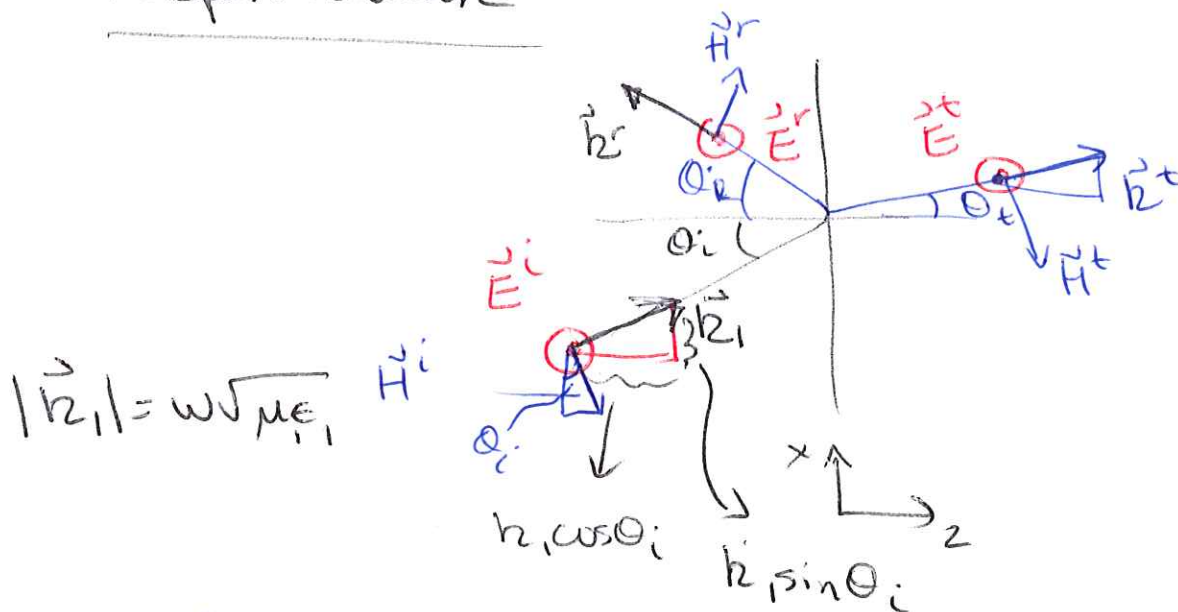 H⃗ʳ
k⃗ʳ E⃗ʳ E⃗ᵗ
θᵣ θₜ k⃗ᵗ
θᵢ H⃗ᵗ
E⃗ⁱ
k⃗₁
|k⃗₁| = ω√μ₁ε₁ H⃗ⁱ
θᵢ
x
k₁cosθᵢ z
k₁sinθᵢ